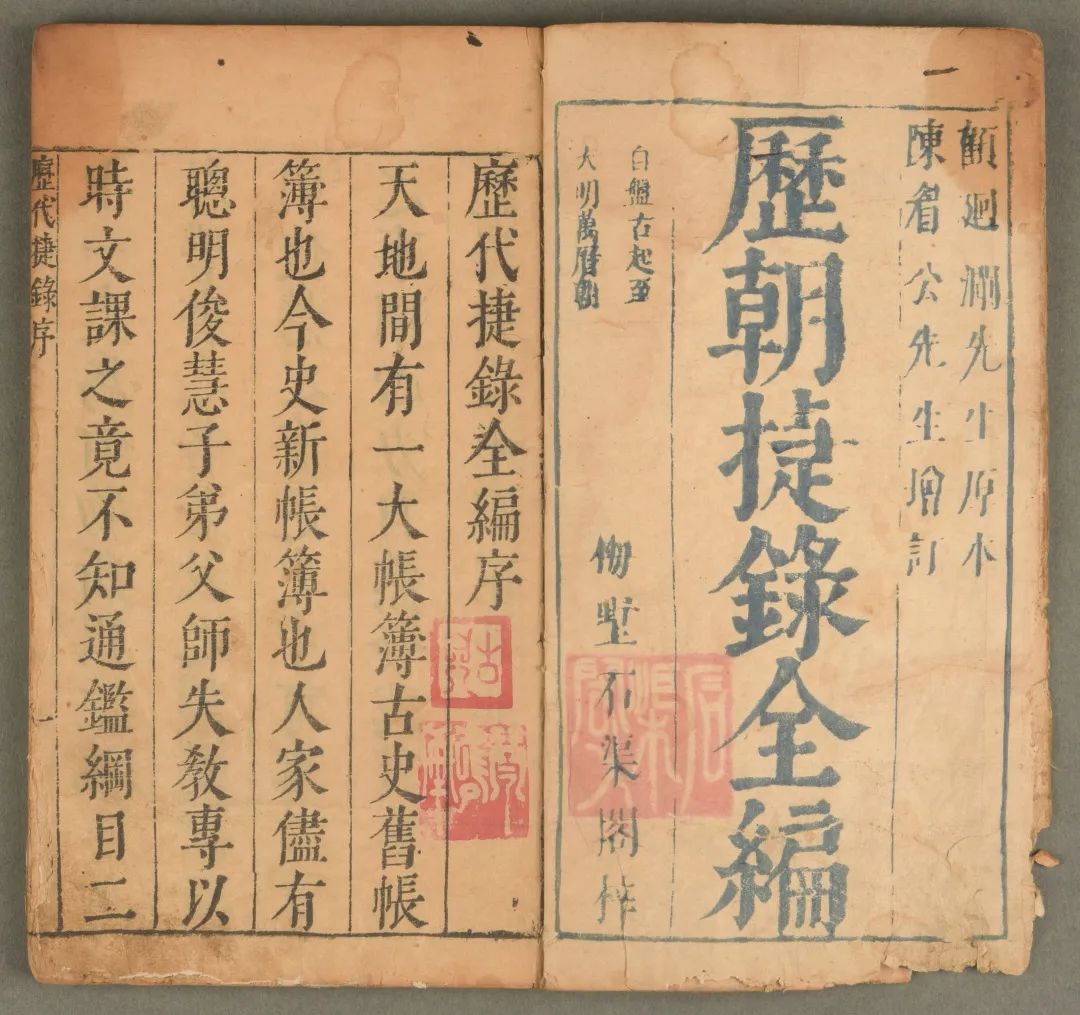 一
顧迴瀾先生原本
陳眉公先生增訂
歷朝捷錄全編
自盤古起至
大明萬曆朝
石渠閣梓
歷代捷錄全編序
天地間有一大帳簿古史舊帳
簿也今史新帳簿也人家儘有
聰明俊慧子弟父師失教專以
時文課之竟不知通鑑綱目二
歷代捷錄序
一